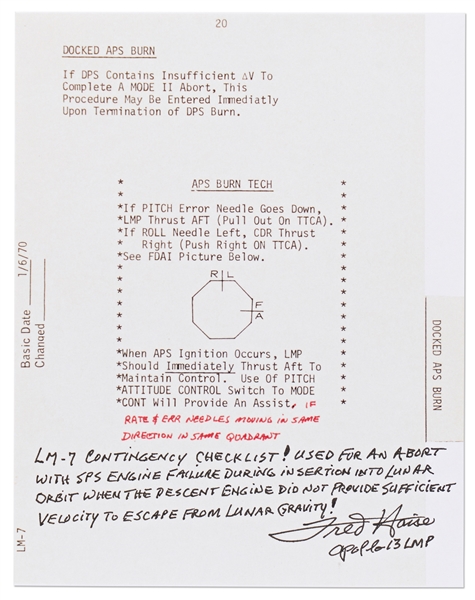 20
DOCKED APS BURN
If DPS Contains Insufficient ΔV To
Complete A MODE II Abort, This
Procedure May Be Entered Immediatly
Upon Termination of DPS Burn.
* APS BURN TECH *
*If PITCH Error Needle Goes Down, *
*LMP Thrust AFT (Pull Out On TTCA). *
*If ROLL Needle Left, CDR Thrust *
* Right (Push Right ON TTCA). *
*See FDAI Picture Below. *
R L
F
A
*When APS Ignition Occurs, LMP *
*Should Immediately Thrust Aft To *
*Maintain Control. Use Of PITCH *
*ATTITUDE CONTROL Switch To MODE *
*CONT Will Provide An Assist, IF
RATE & ERR NEEDLES MOVING IN SAME
DIRECTION IN SAME QUADRANT
LM-7 CONTINGENCY CHECKLIST! USED FOR AN ABORT
WITH SPS ENGINE FAILURE DURING INSERTION INTO LUNAR
ORBIT WHEN THE DESCENT ENGINE DID NOT PROVIDE SUFFICIENT
VELOCITY TO ESCAPE FROM LUNAR GRAVITY!
Fred Haise
Apollo 13 LMP
Basic Date 1/6/70
Changed
LM-7
DOCKED APS BURN